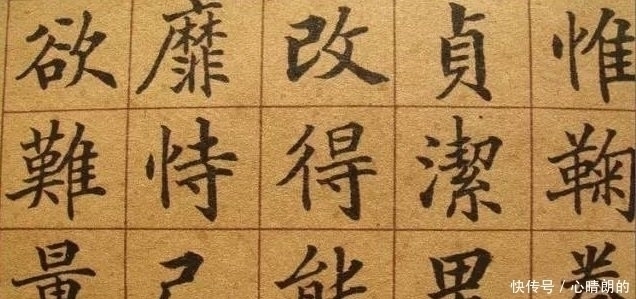 惟鞠養
貞潔男
改得能
靡恃己
欲難量
快传号 / 心晴朗的